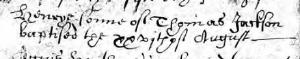 Henry sonne of Thomas Jackson
baptised the xxvith of August